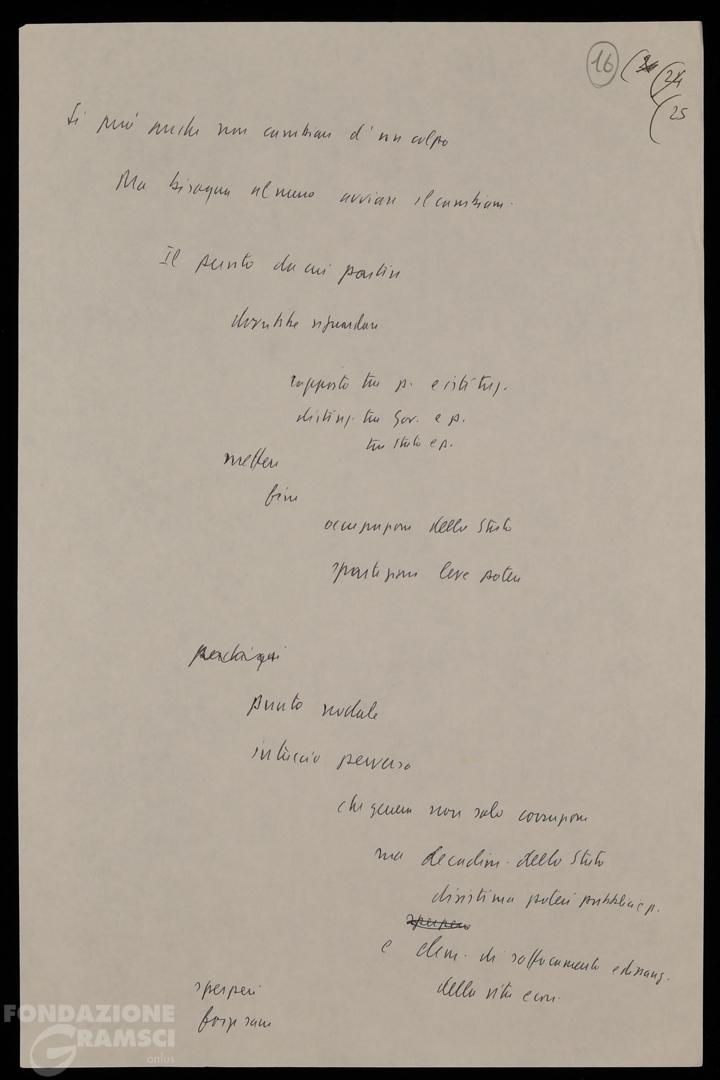 16 (24
(25
Si può anche non cambiare d'un colpo
Ma bisogna almeno avviare il cambiam.
Il punto da cui partire
dovrebbe riguardare
rapporto tra p. e istituz.
disting. tra Gov. e p.
tra Stato e p.
mettere
fine
occupazione dello Stato
spartizione leve potere
perché qui
punto nodale
intreccio perverso
che genera non solo corruzione
ma decadim. dello Stato
disistima poteri pubblici e p.
sperpero
e elem. di soffocamento e dissang.
della vita econ.
sperperi
forze sane
FONDAZIONE
GRAMSCI
onlus